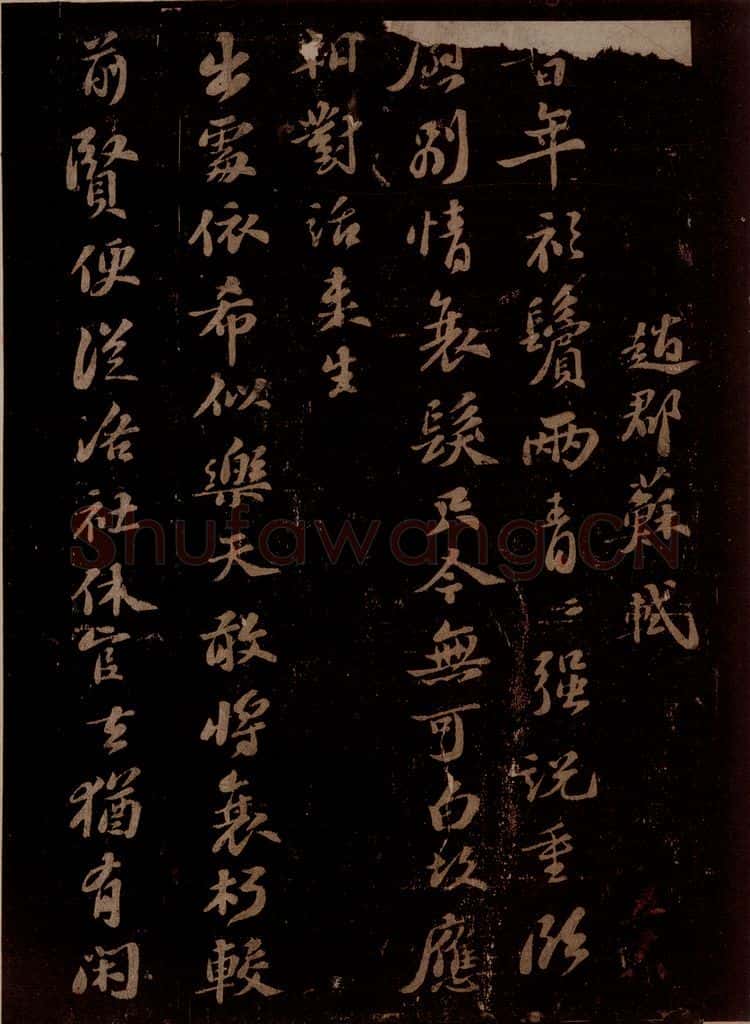 趙郡蘇軾
年衫鬢兩青〻强說重臨
慰別情衰髮只今無可白故應
相對話來生
出處依希似樂天敢將衰朽較
前賢便從洛社休官去猶有閑
Shufawang.CN